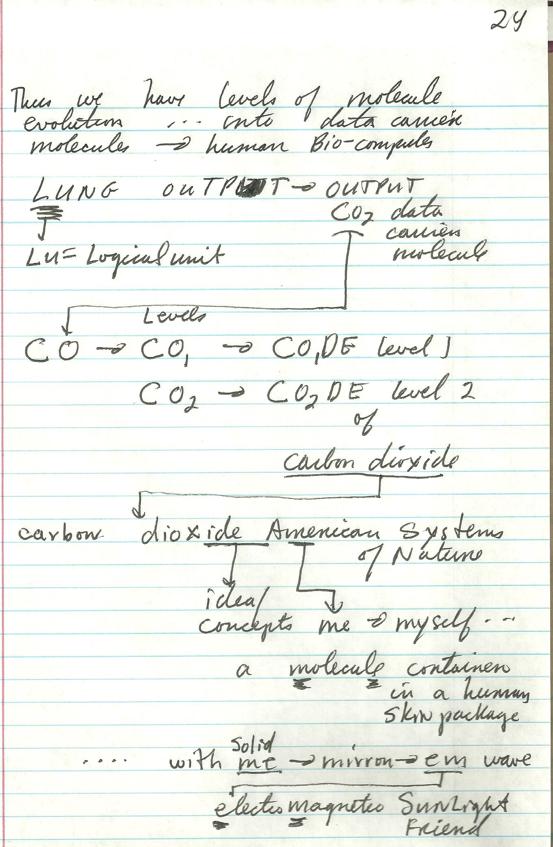 24
Thus we have levels of molecule
evolution ... into data carrier
molecules → human Bio-computers
LUNG OUTPUT → OUTPUT
CO2 data
carrier
molecule
LU = Logical unit
Levels
CO → CO1 → CO1DE level 1
CO2 → CO2DE level 2
of
carbon dioxide
carbon dioxide American Systems
of Nature
idea/
concepts me → myself ...
a molecule container
in a human
skin package
solid
.... with me → mirror → em wave
electromagnetic SunLight
Friend